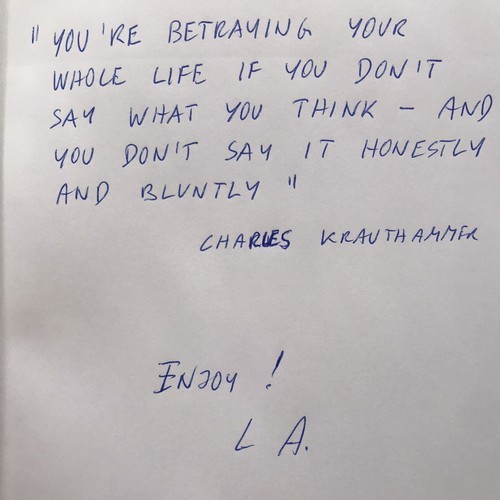 " YOU'RE BETRAYING YOUR
WHOLE LIFE IF YOU DON'T
SAY WHAT YOU THINK - AND
YOU DON'T SAY IT HONESTLY
AND BLUNTLY "
CHARLES KRAUTHAMMER
ENJOY !
L A.